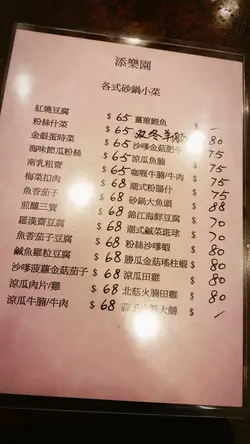 添樂園
各式砂鍋小菜
紅燒豆腐 $ 65 薑蔥鯉魚 $ —
粉絲什菜 $ 65 双冬羊腩 80
金銀蛋時菜 $ 65 沙嗲金菇肥牛 $ 75
海味節瓜粉絲 $ 65 涼瓜魚腩 $ 75
南乳粗齋 $ 65 咖喱牛腩/牛肉 $ 75
梅菜扣肉 $ 68 潮式粉腸什 $ 75
魚香茄子 $ 68 砂鍋大魚頭 $ 88
煎釀三寶 $ 68 錦江海鮮豆腐 $ 70
羅漢齋豆腐 $ 68 潮式鹹菜斑球 $ 70
魚香茄子豆腐 $ 68 粉絲沙嗲蝦 $ 80
鹹魚雞粒豆腐 $ 68 勝瓜金菇瑤柱蝦 $ 80
沙嗲菠蘿金菇茄子 $ 68 涼瓜田雞 $ 80
涼瓜肉片/雞 $ 68 北菇火腩田雞 $ 80
涼瓜牛腩/牛肉 $ 68 蒜子火腩大鱔 $ /